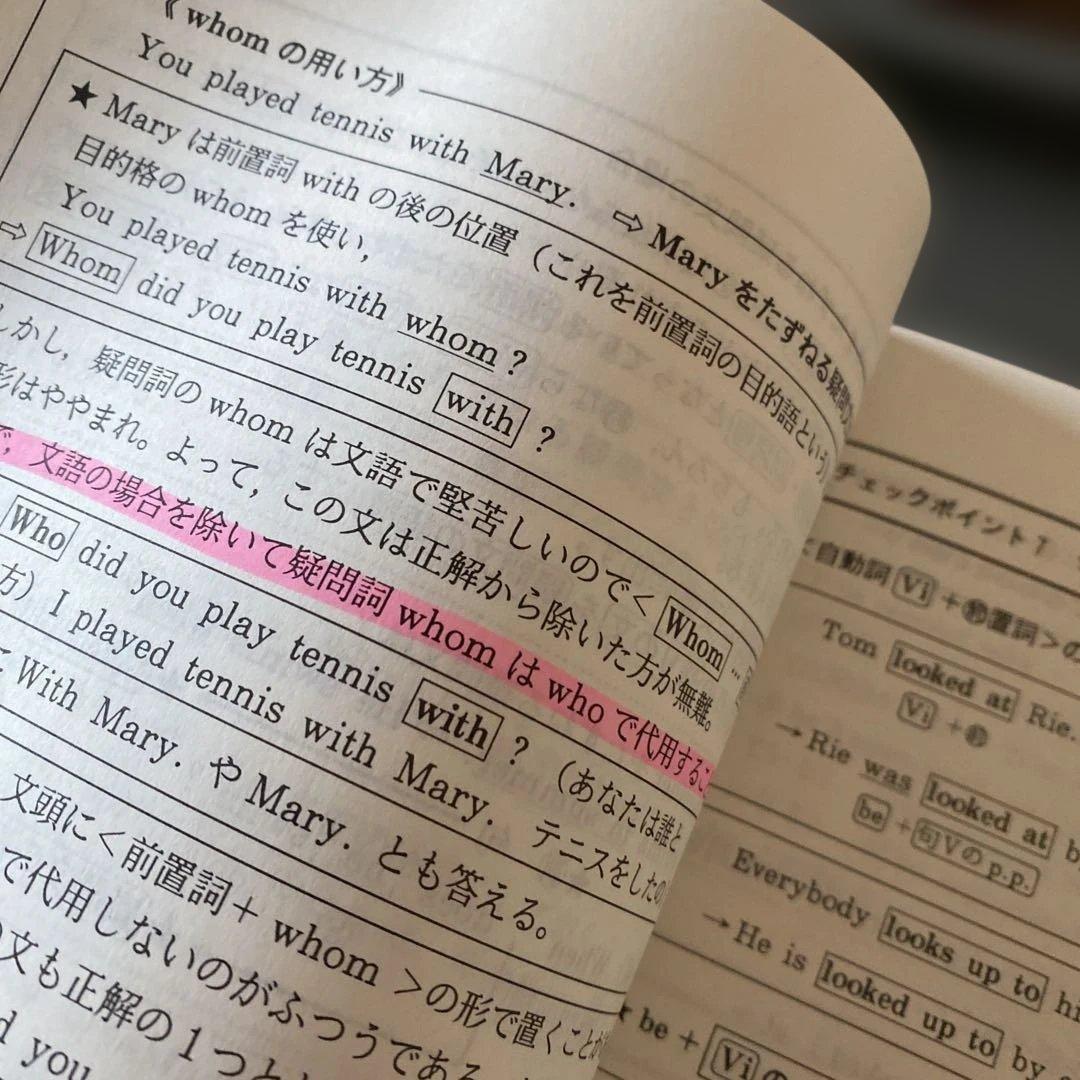 《whom の用い方》
You played tennis with Mary. ⇨ Mary をたずねる疑問
★ Mary は前置詞 with の後の位置（これを前置詞の目的語という
目的格の whom を使い,
You played tennis with whom ?
⇨ Whom did you play tennis with ?
しかし, 疑問詞の whom は文語で堅苦しいので< Whom …
形はややまれ。よって, この文は正解から除いた方が無難。
で, 文語の場合を除いて疑問詞 whom は who で代用するこ
Who did you play tennis with ? （あなたは誰と
方）I played tennis with Mary. テニスをしたの
に With Mary. や Mary. とも答える。
文頭に<前置詞+ whom >の形で置くことが
で代用しないのがふつうである
の文も正解の1つと
d you
チェックポイント7
て自動詞 Vi +前置詞>の
Tom looked at Rie.
Vi +前
→Rie was looked at b
be +句Vの p.p.
Everybody looks up to hi
→He is looked up to by
be + Vi の